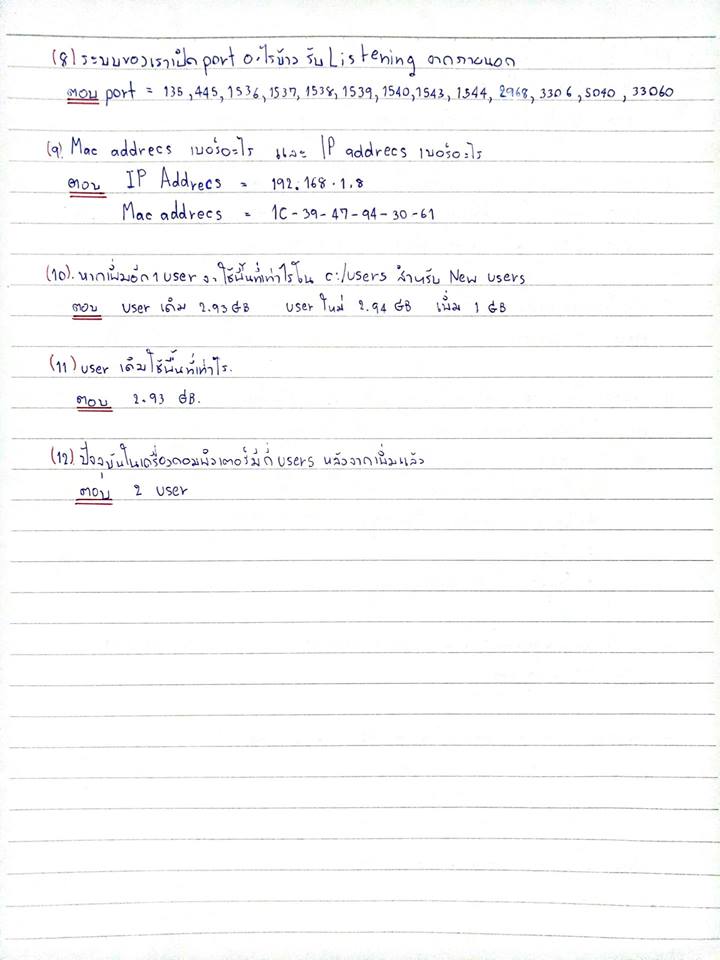 (8) ระบบของเราเปิด port อะไรบ้าง รับ Listening จากภายนอก
ตอบ port = 135, 445, 1536, 1537, 1538, 1539, 1540, 1543, 1544, 2968, 3306, 5040, 33060
(9) Mac addrecs เบอร์อะไร และ IP addrecs เบอร์อะไร
ตอบ IP Addrecs = 192.168.1.8
Mac addrecs = 1C-39-47-94-30-61
(10). หากเพิ่มอีก 1 user จะใช้พื้นที่เท่าไรใน c:/users สำหรับ New users
ตอบ user เดิม 2.93 GB user ใหม่ 2.94 GB เพิ่ม 1 GB
(11) user เดิมใช้พื้นที่เท่าไร.
ตอบ 2.93 GB.
(12). ปัจจุบันในเครื่องคอมพิวเตอร์มีกี่ users หลังจากเพิ่มแล้ว
ตอบ 2 user